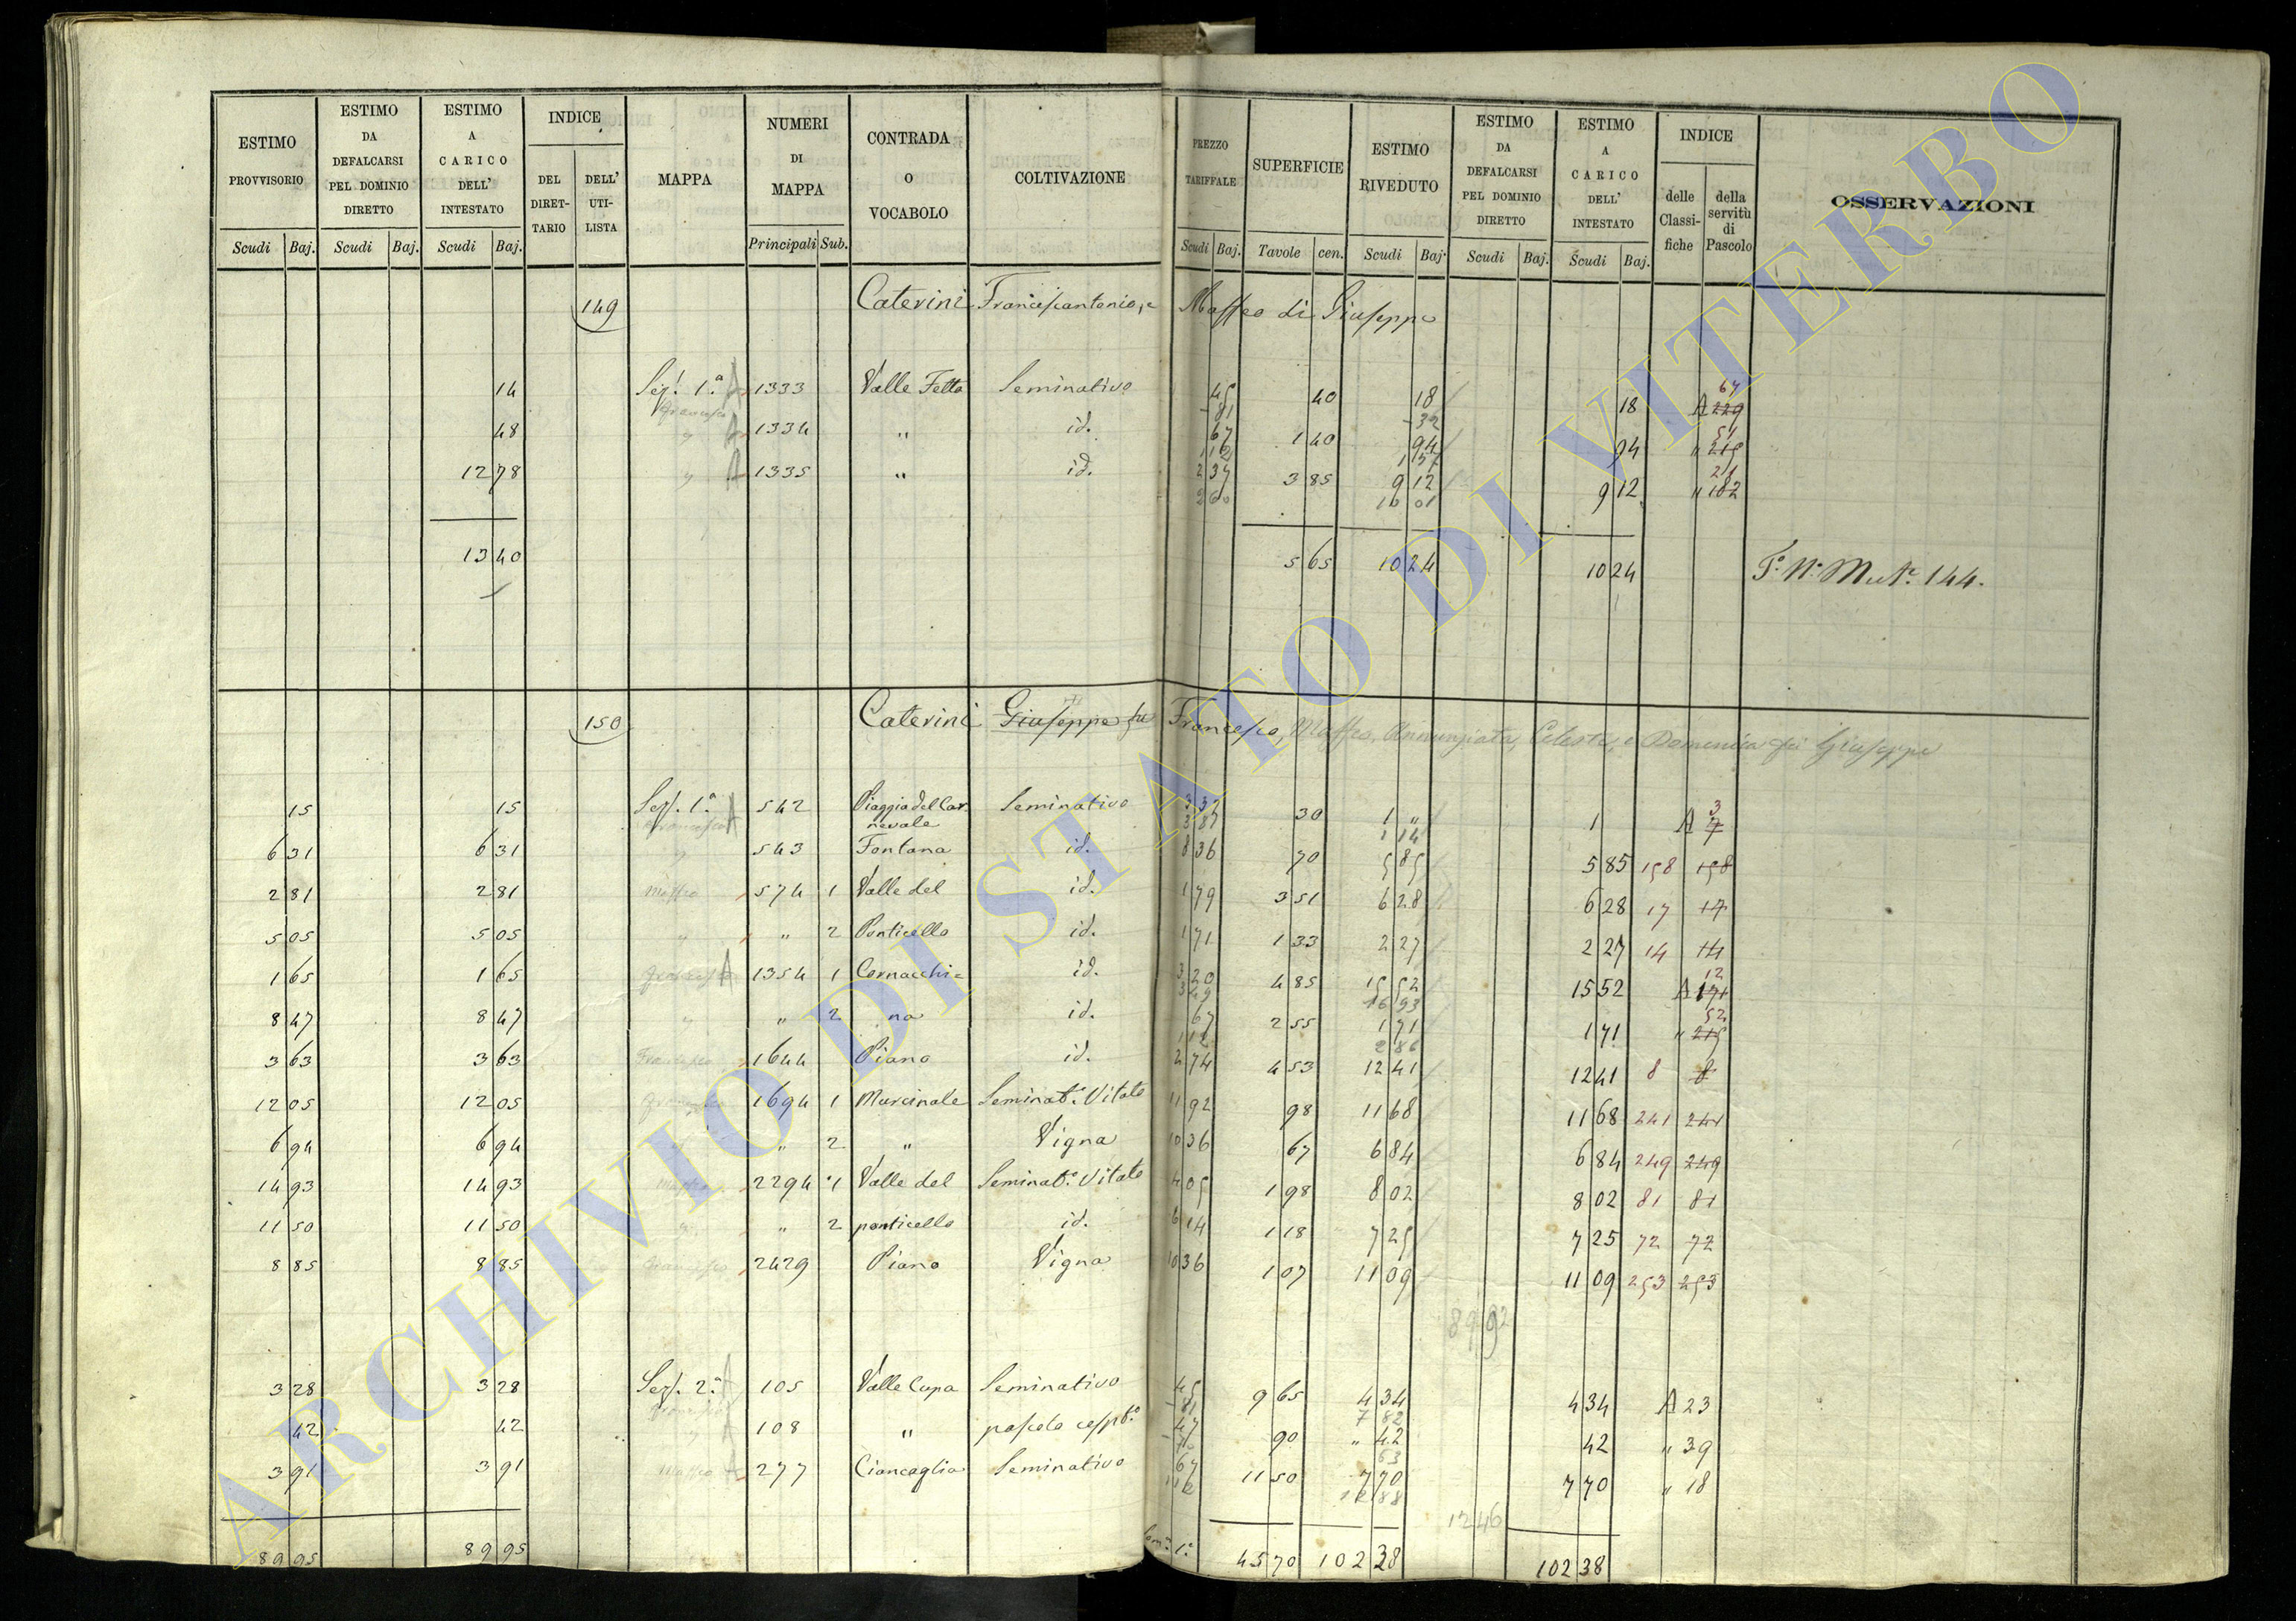 ESTIMO PROVVISORIO
ESTIMO DA DEFALCARSI PEL DOMINIO DIRETTO
ESTIMO A CARICO DELL' INTESTATO
INDICE
DEL DIRETTARIO
DELL' UTILISTA
MAPPA
NUMERI DI MAPPA
CONTRADA O VOCABOLO
COLTIVAZIONE
PREZZO TARIFFALE
SUPERFICIE
ESTIMO RIVEDUTO
ESTIMO DA DEFALCARSI PEL DOMINIO DIRETTO
ESTIMO A CARICO DELL' INTESTATO
INDICE
delle Classifiche
della servitù di Pascolo
OSSERVAZIONI
Scudi Baj. Scudi Baj. Scudi Baj. Principali Sub. Scudi Baj. Tavole cen. Scudi Baj. Scudi Baj. Scudi Baj.
149 Caterini Francescantonio, e Maffeo di Giuseppe
14 Sez. 1.a A 1333 Valle Fetta Seminativo 45 40 18 18 A 229 64
Francesco 81 32
48 " A 1334 " id. 67 1 40 94 94 " 215 51
112 1 57
12 78 " A 1335 " id. 2 37 3 85 9 12 9 12 " 182 21
2 60 10 01
13 40 5 65 10 24 10 24
144.
150 Caterini Giuseppe fu Francesco, Maffeo, Annunziata, Celeste, e Domenica fu Giuseppe
15 15 Sez. 1.a A 542 Piaggia del Carnevale Seminativo 3 37 30 1 " 1 A 7 3
Francesco 3 87 1 14
6 31 6 31 " 543 Fontana id. 8 36 70 5 85 5 85 158 158
2 81 2 81 Maffeo 574 1 Valle del id. 1 79 3 51 6 28 6 28 17 17
5 05 5 05 " " 2 Ponticello id. 1 71 1 33 2 27 2 27 14 14
1 65 1 65 Francesco A 1354 1 Cornacchia= id. 3 20 4 85 15 52 15 52 A 171 12
3 49 16 93
8 47 8 47 " " 2 na id. 67 2 55 1 71 1 71 " 215 52
1 12 2 86
3 63 3 63 Francesco 1644 Piano id. 2 74 4 53 12 41 12 41 8 8
12 05 12 05 Francesco 1694 1 Murcinale Seminat.o Vitato 11 92 98 11 68 11 68 241 241
6 94 6 94 " 2 " Vigna 10 36 67 6 84 6 84 249 249
14 93 14 93 Maffeo 2294 1 Valle del Seminat.o Vitato 4 05 1 98 8 02 8 02 81 81
11 50 11 50 " " 2 ponticello id. 6 14 1 18 7 25 7 25 72 72
8 85 8 85 Francesco 2429 Piano Vigna 10 36 1 07 11 09 11 09 253 253
89 92
3 28 3 28 Sez. 2.a A 105 Valle Cupa Seminativo 45 9 65 4 34 4 34 A 23
Francesco 81 7 82
42 42 " A 108 " pascolo cesp.to 47 90 " 42 42 " 39
70 63
3 91 3 91 Maffeo A 277 Ciancaglia Seminativo 67 11 50 7 70 7 70 " 18
1 12 12 88
12 46
89 95 89 95 45 70 102 38 102 38
ARCHIVIO DI STATO DI VITERBO